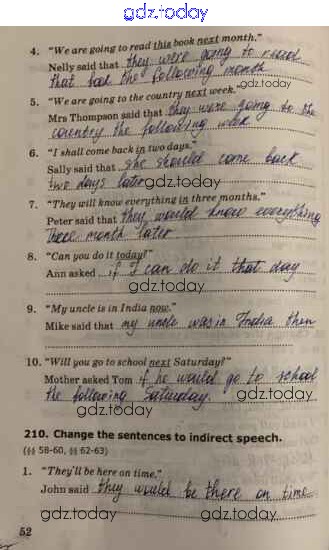 gdz.today
4. "We are going to read this book next month."
Nelly said that they were going to read
that book the following month
gdz.today
5. "We are going to the country next week."
Mrs Thompson said that they were going to the
country the following week
6. "I shall come back in two days."
Sally said that she should come back
two days later
gdz.today
7. "They will know everything in three months."
Peter said that they would know everything
three month later
8. "Can you do it today?"
Ann asked if I can do it that day
gdz.today
9. "My uncle is in India now."
Mike said that my uncle was in India then
10. "Will you go to school next Saturday?"
Mother asked Tom if he would go to school
the following Saturday.
gdz.today
gdz.today
210. Change the sentences to indirect speech.
(§§ 58-60, §§ 62-63)
1. "They'll be here on time."
John said they would be there on time
52
gdz.today
gdz.today
gdz.today